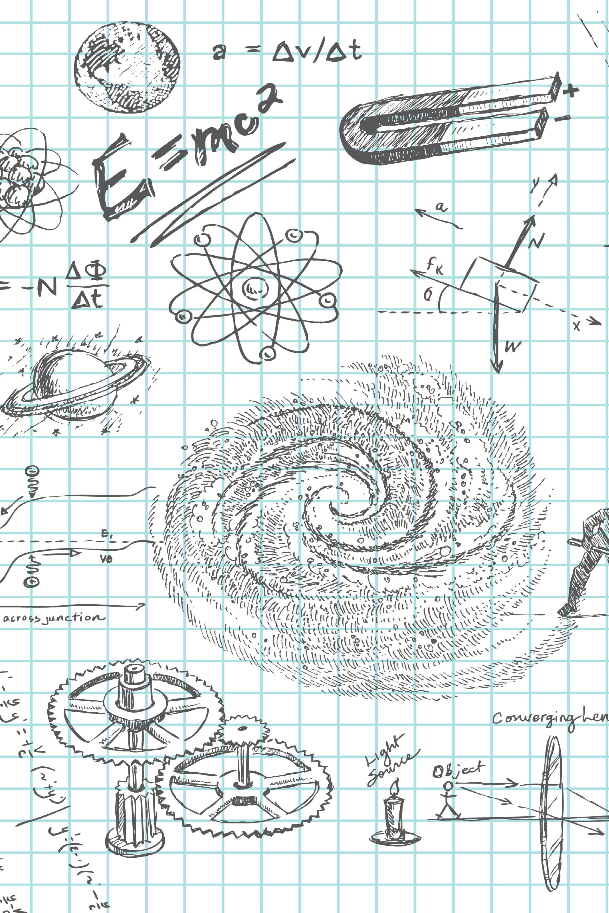 a = Δv/Δt
E=mc²
+
−
y
a
N
fₖ
θ
x
W
= -N ΔΦ/Δt
VB
across junction
Converging Len
Light
Source
Object